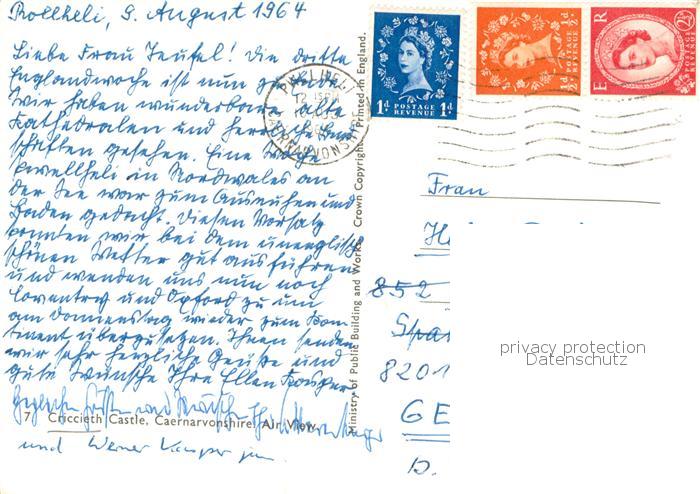 Pollheli, 9. August 1964
Liebe Frau Teufel! Die dritte
Englandwoche ist nun
Wir haben wunderbare alte
Kathedralen und
schaften gesehen. Eine Woche
Pwellheli in Nordwales an
der See war zum Ausruhen und
Baden gedacht. Diesen Vorsatz
konnten wir bei dem unenglisch
schönen Wetter gut ausführen
und wenden uns nun noch
Coventry und Oxford zu um
am Donnerstag wieder zum Kon-
tinent überzusetzen. Ihnen senden
wir sehr herzliche Grüße und
gute Wünsche Ihre Ellen Kamper
und Werner Kamper jun.
7 Criccieth Castle, Caernarvonshire. Air View.
Ministry of Public Building and Works. Crown Copyright. Printed in England.
PWLLHELI
CAERNARVONSHIRE
1D POSTAGE REVENUE 1D
½D POSTAGE REVENUE ½D
E R 2½D POSTAGE REVENUE
Frau
852
8201
GE
D.
privacy protection
Datenschutz